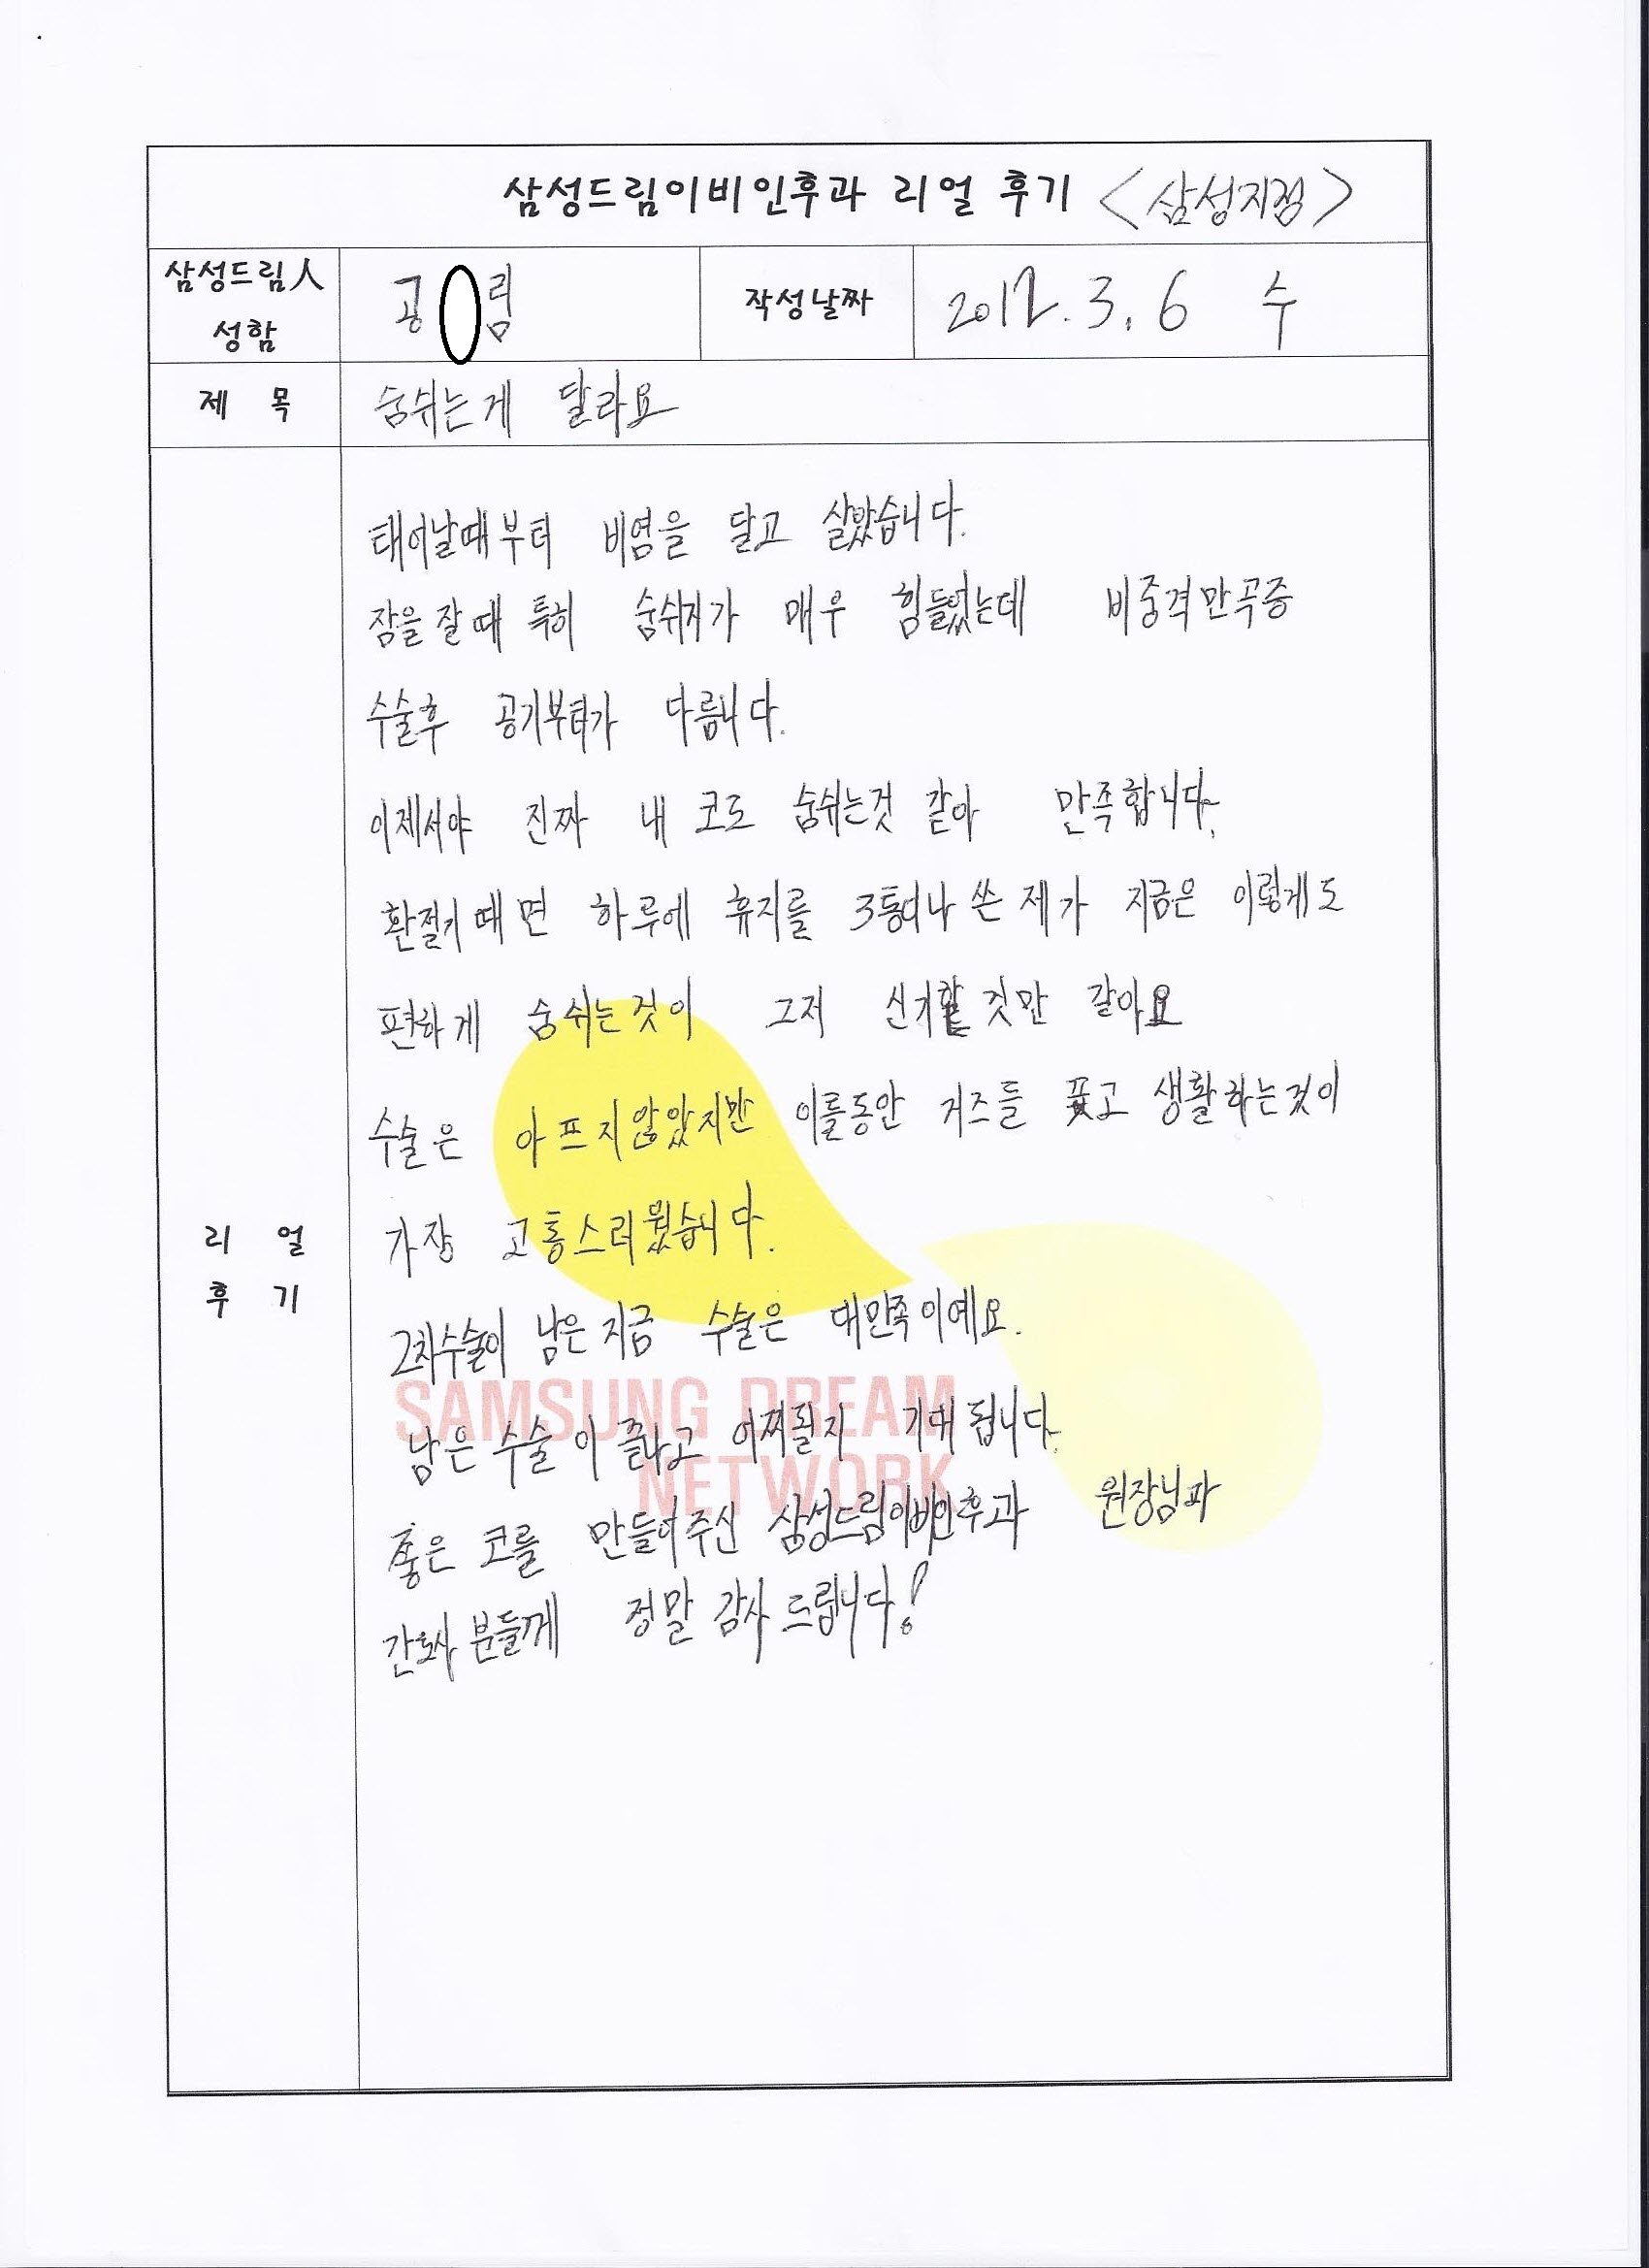 삼성드림이비인후과 리얼 후기 <삼성지점>
삼성드림人 성함
공 림
작성날짜
2012. 3. 6 수
제 목
숨쉬는게 달라요
리 얼 후 기
태어날때부터 비염을 달고 살았습니다.
잠을 잘 때 특히 숨쉬기가 매우 힘들었는데 비중격만곡증
수술후 공기부터가 다릅니다.
이제서야 진짜 내 코로 숨쉬는것 같아 만족합니다.
환절기 때면 하루에 휴지를 3통이나 쓴 제가 지금은 이렇게도
편하게 숨쉬는것이 그저 신기할 것만 같아요
수술은 아프지않았지만 이틀동안 거즈를 꽂고 생활하는것이
가장 고통스러웠습니다.
2차수술이 남은 지금 수술은 대만족이예요.
남은 수술이 어찌될지 기대 됩니다.
좋은 코를 만들어주신 삼성드림이비인후과 원장님과
간호사 분들께 정말 감사드립니다!
SAMSUNG DREAM
NETWORK